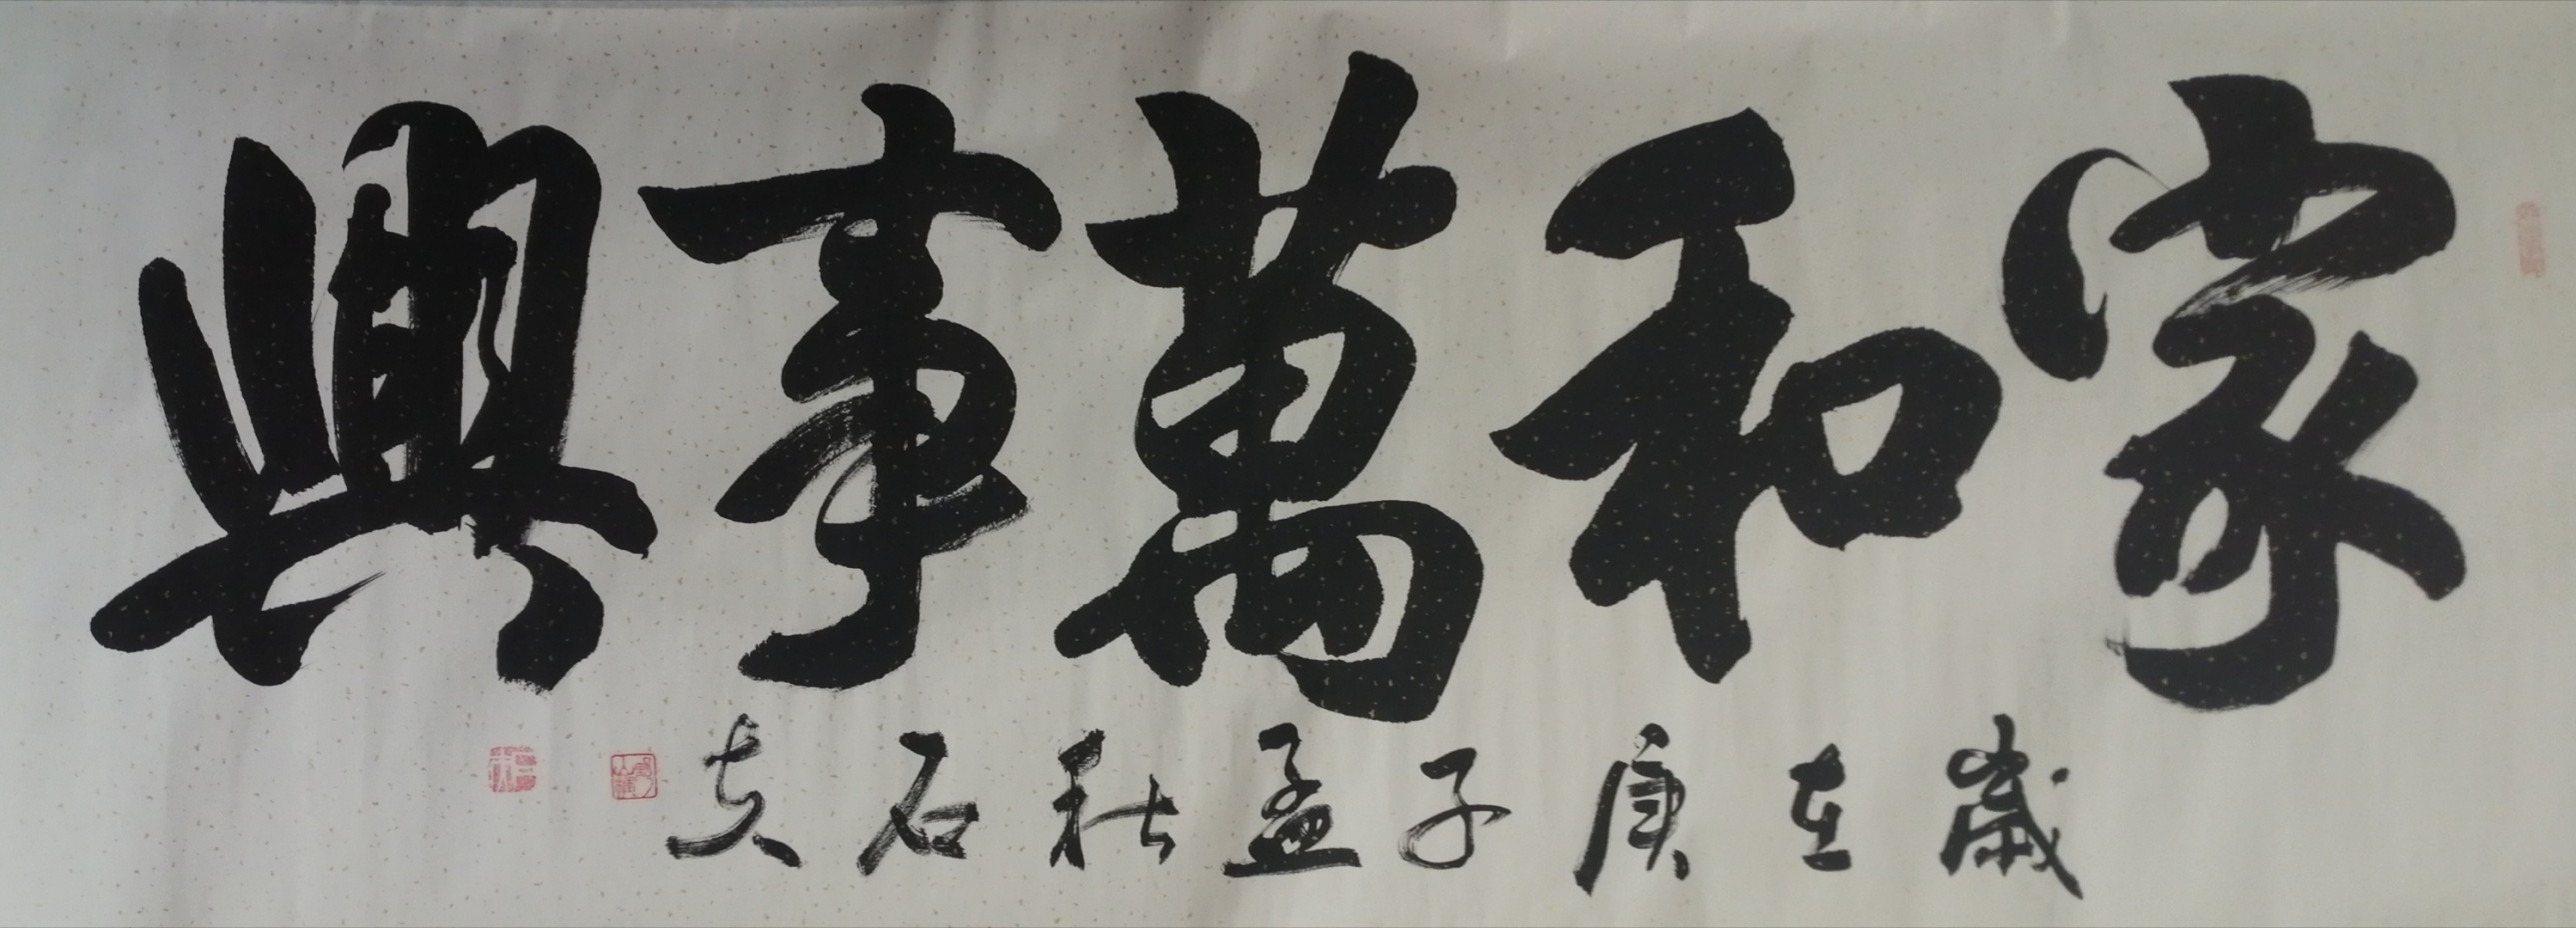 家和萬事興
歲在庚子孟秋石夫